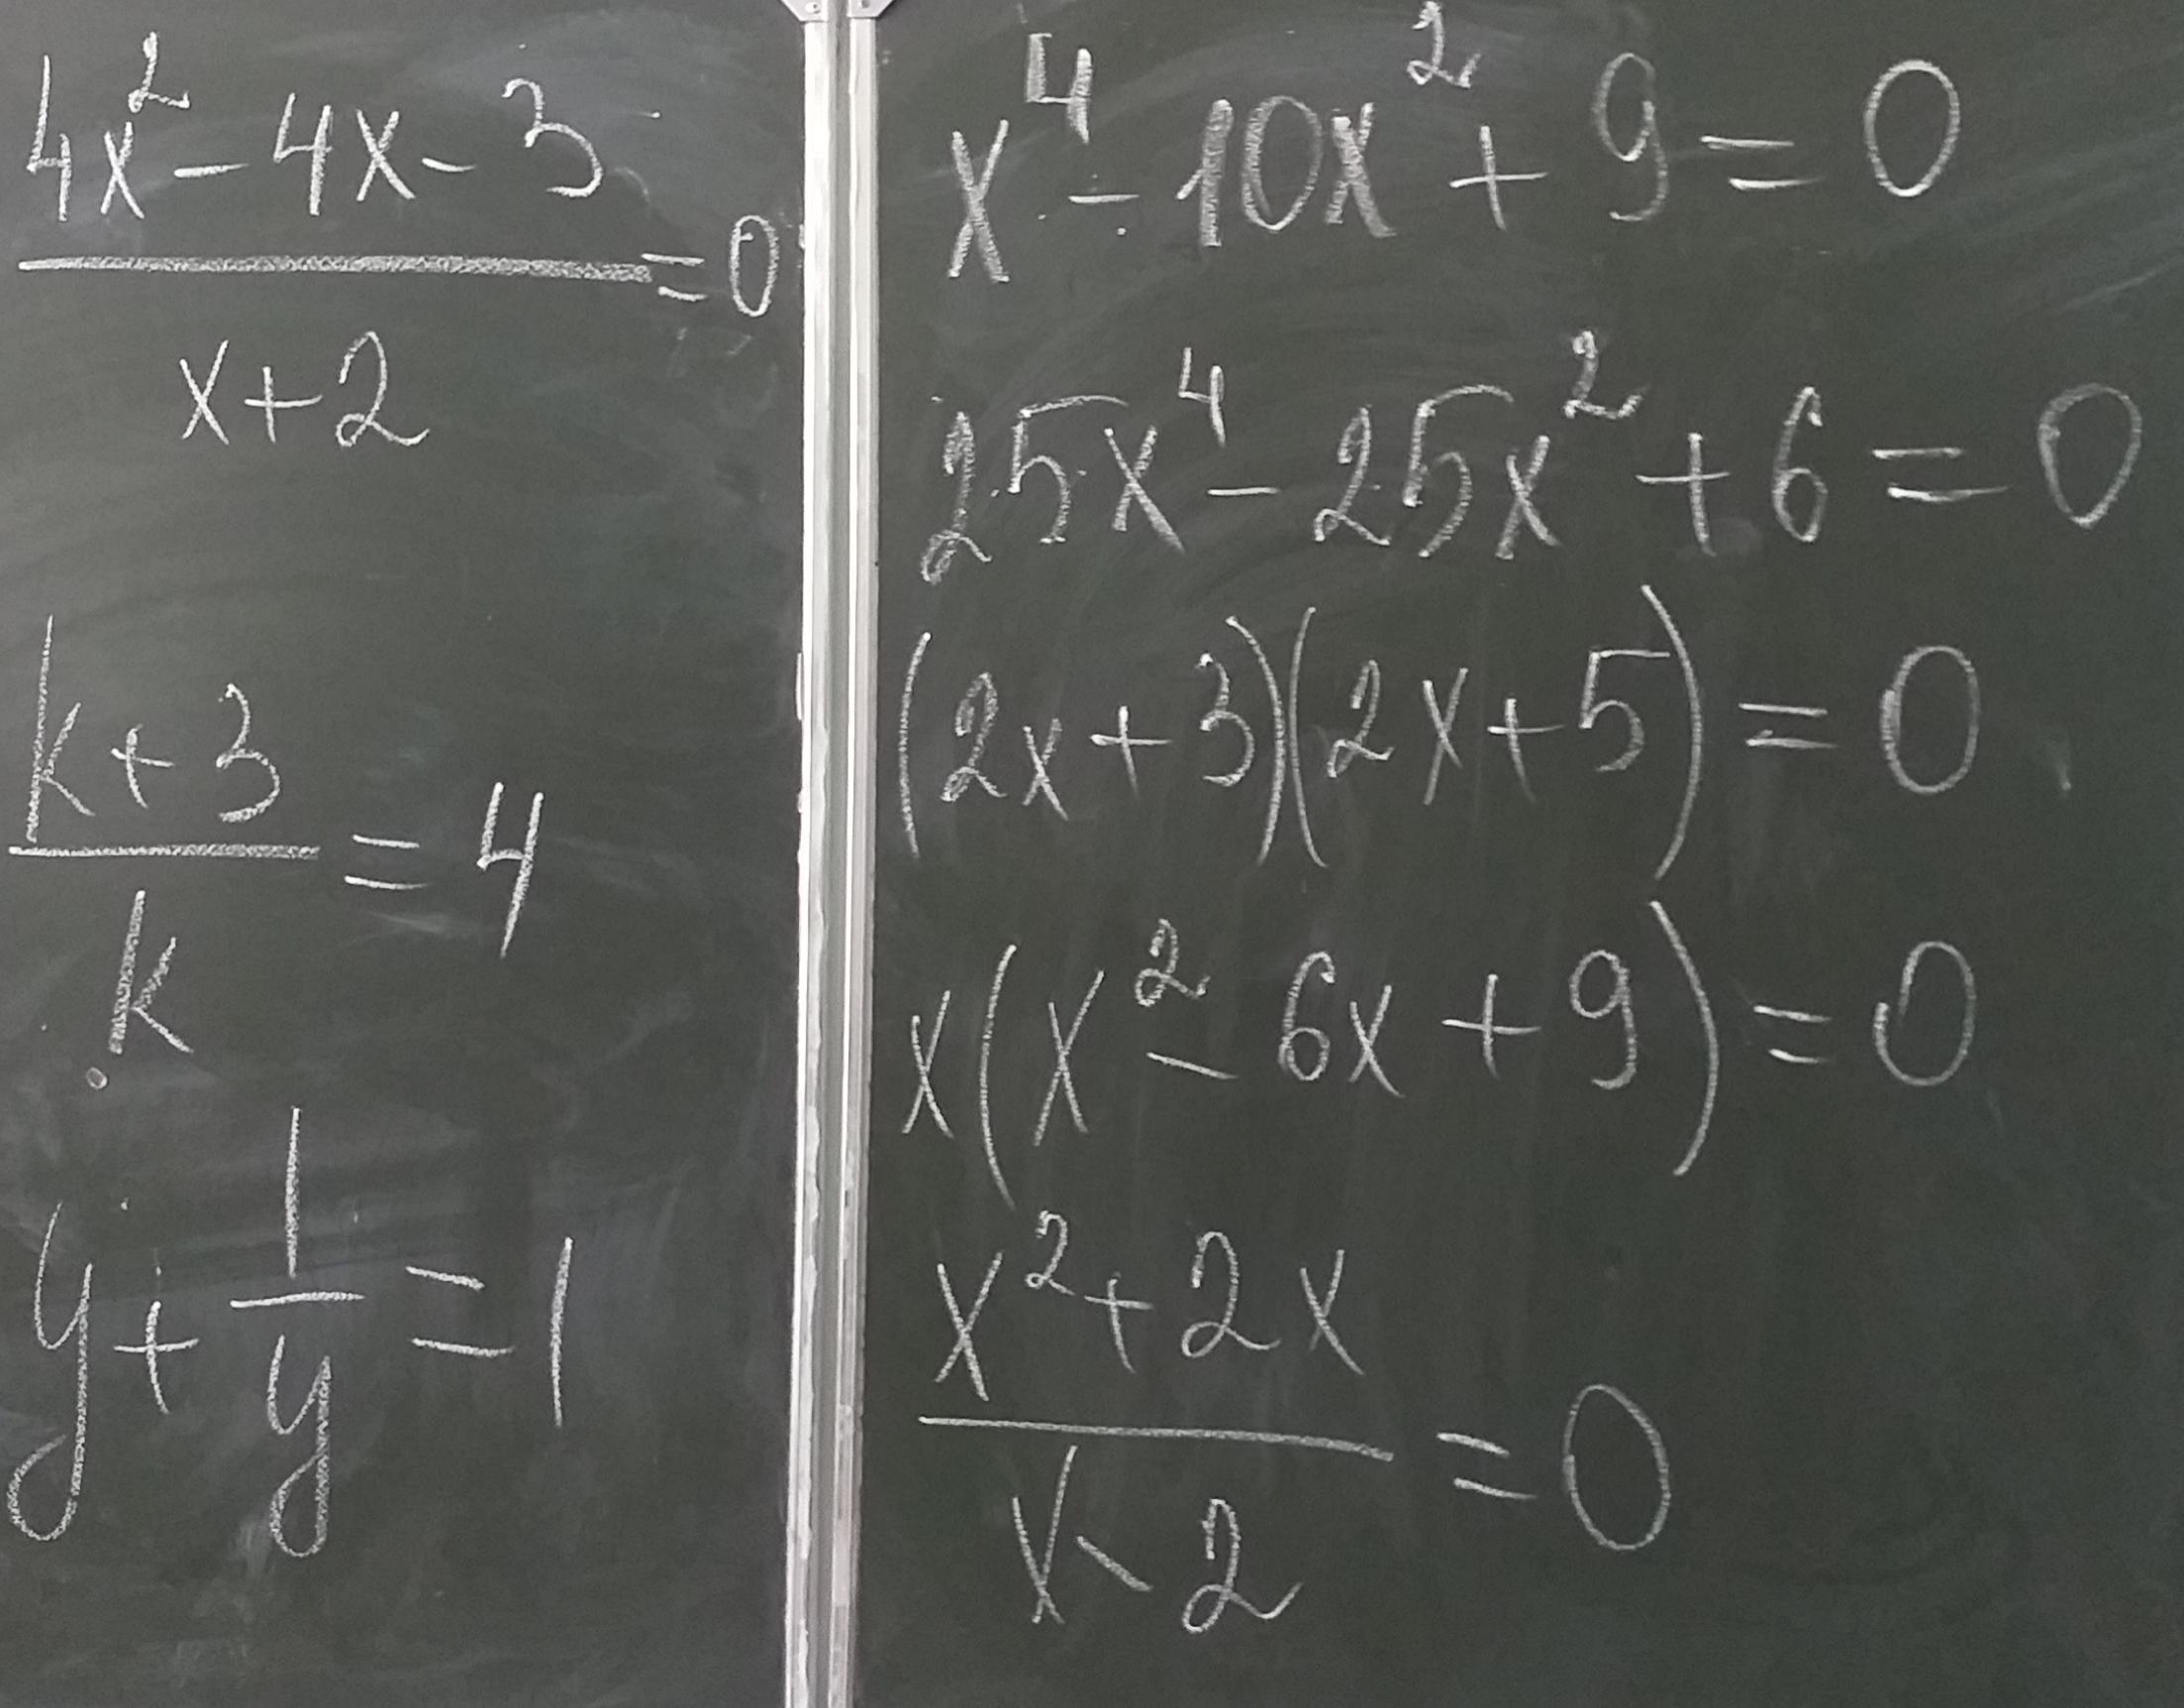 4x² - 4x - 3
——— = 0
x + 2
k + 3
——— = 4
k
y + 1/y = 1
x⁴ - 10x² + 9 = 0
25x⁴ - 25x² + 6 = 0
(2x + 3)(2x + 5) = 0
x(x² - 6x + 9) = 0
x² + 2x
——— = 0
x - 2